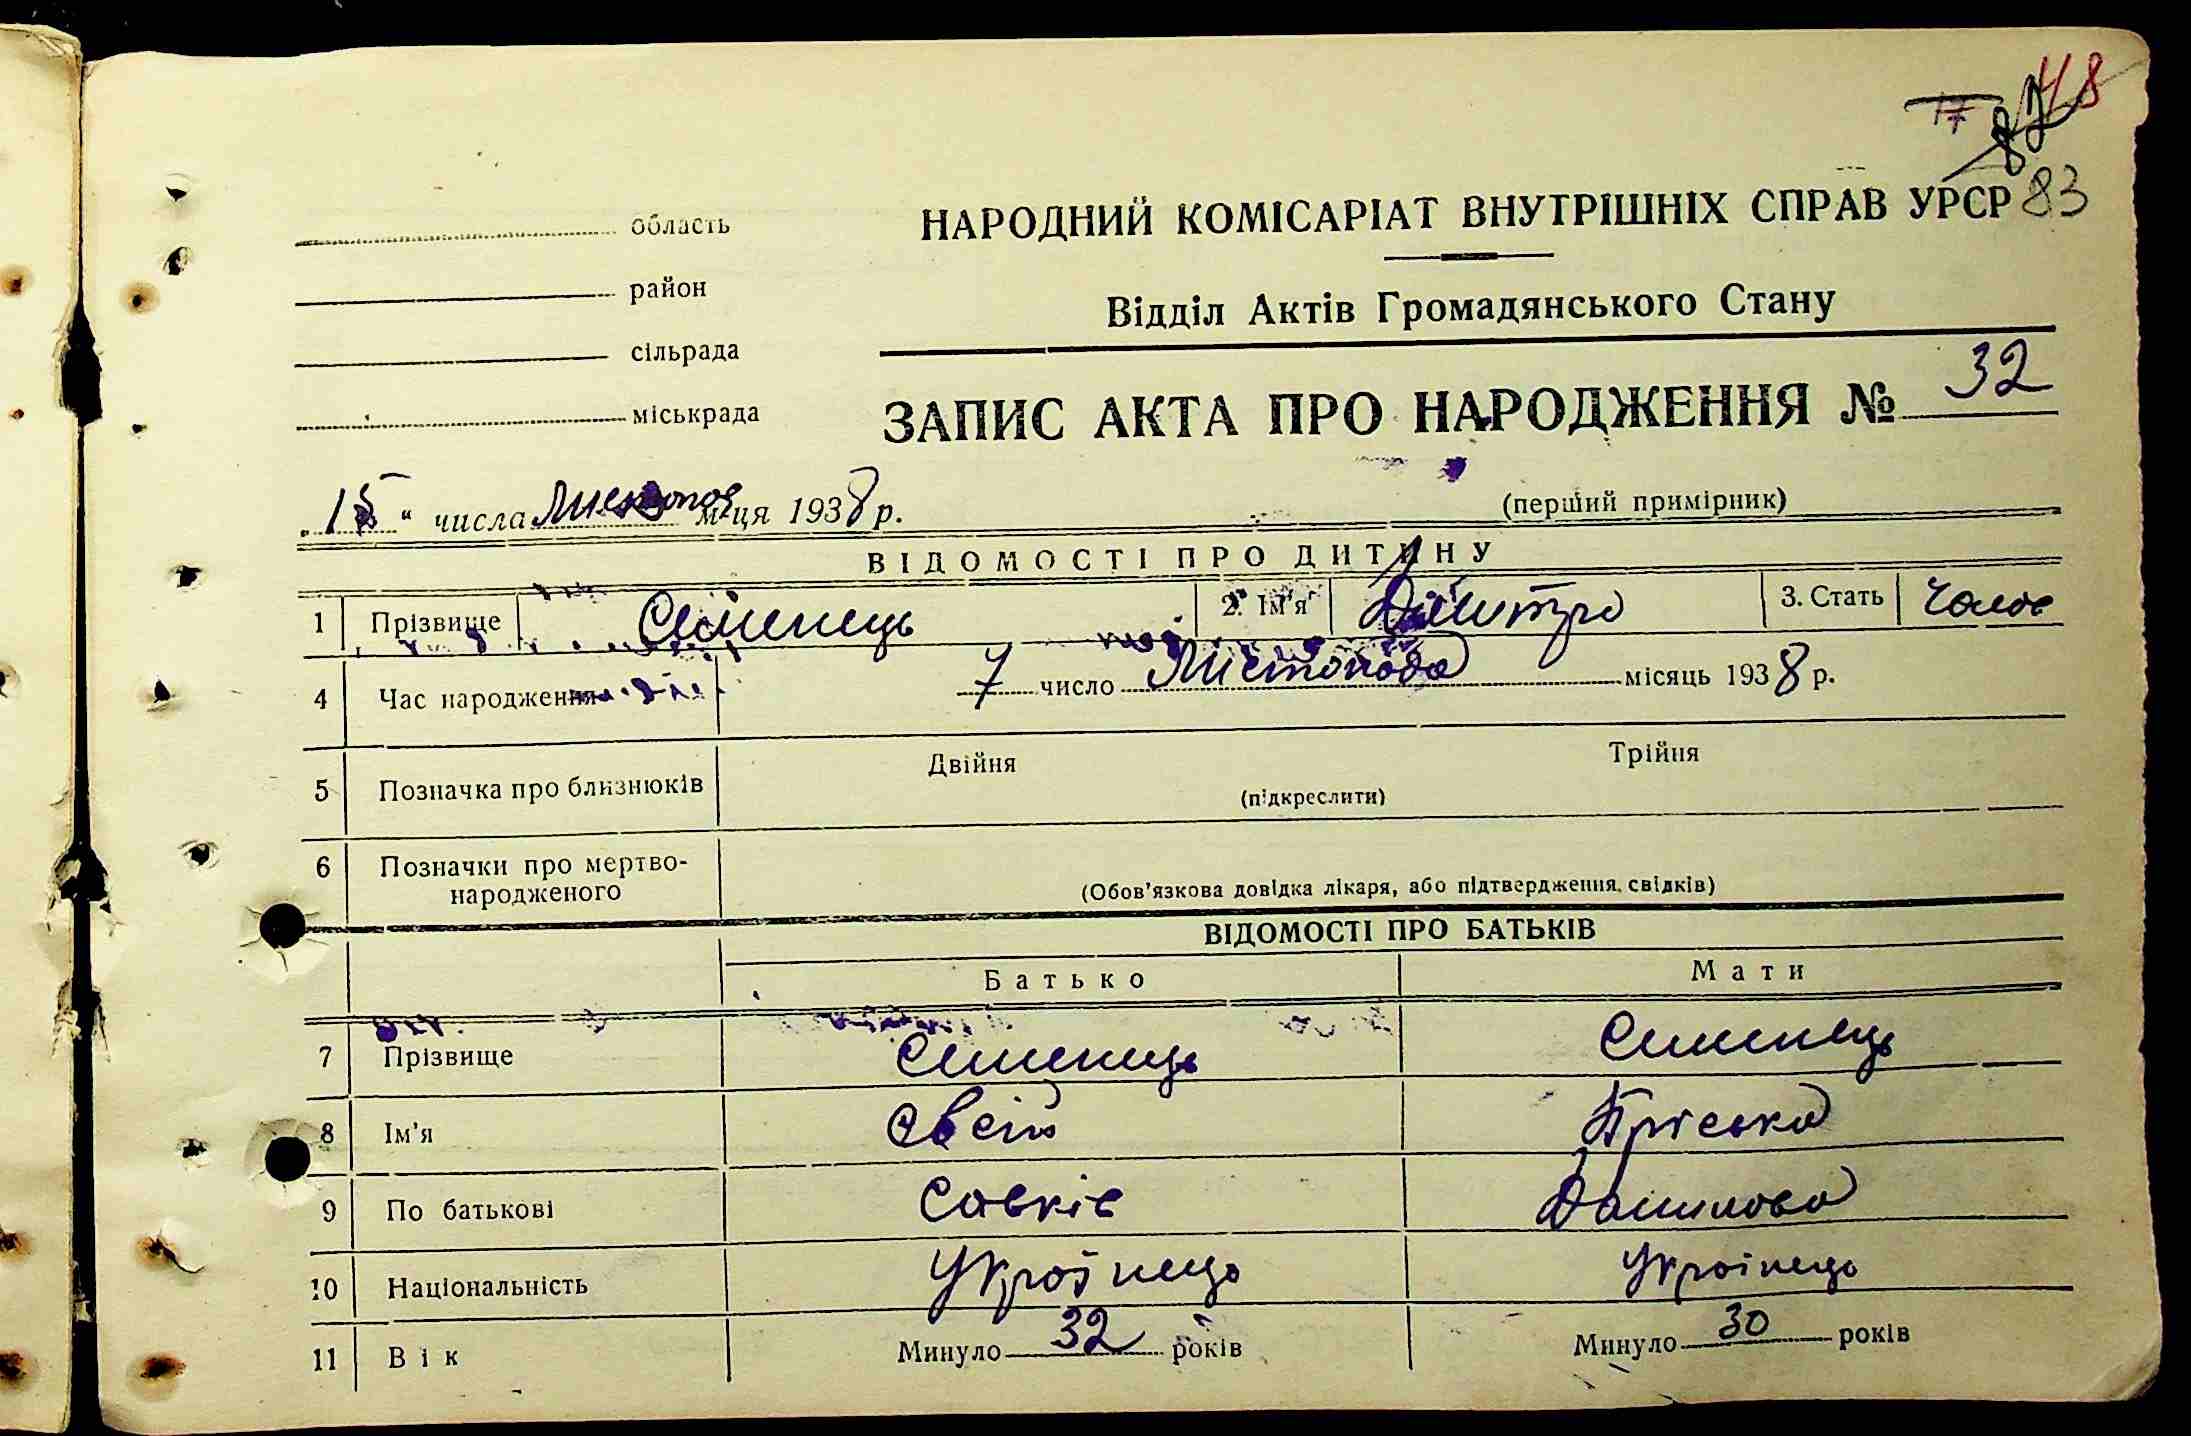 17 82 48
область НАРОДНИЙ КОМІСАРІАТ ВНУТРІШНІХ СПРАВ УРСР 83
район
Відділ Актів Громадянського Стану
сільрада
міськрада ЗАПИС АКТА ПРО НАРОДЖЕННЯ № 32
„15“ числа Листопад м-ця 1938 р. (перший примірник)
ВІДОМОСТІ ПРО ДИТИНУ
1 Прізвище Семенець 2. Ім'я Дмитро 3. Стать Чолов
4 Час народження 7 число Листопада місяць 1938 р.
5 Позначка про близнюків Двійня Трійня
(підкреслити)
6 Позначки про мертво-
народженого (Обов'язкова довідка лікаря, або підтвердження свідків)
ВІДОМОСТІ ПРО БАТЬКІВ
Батько Мати
7 Прізвище Семенець Семенець
8 Ім'я Пріська
9 По батькові Савків Данилова
10 Національність Українець Українець
11 Вік Минуло 32 років Минуло 30 років